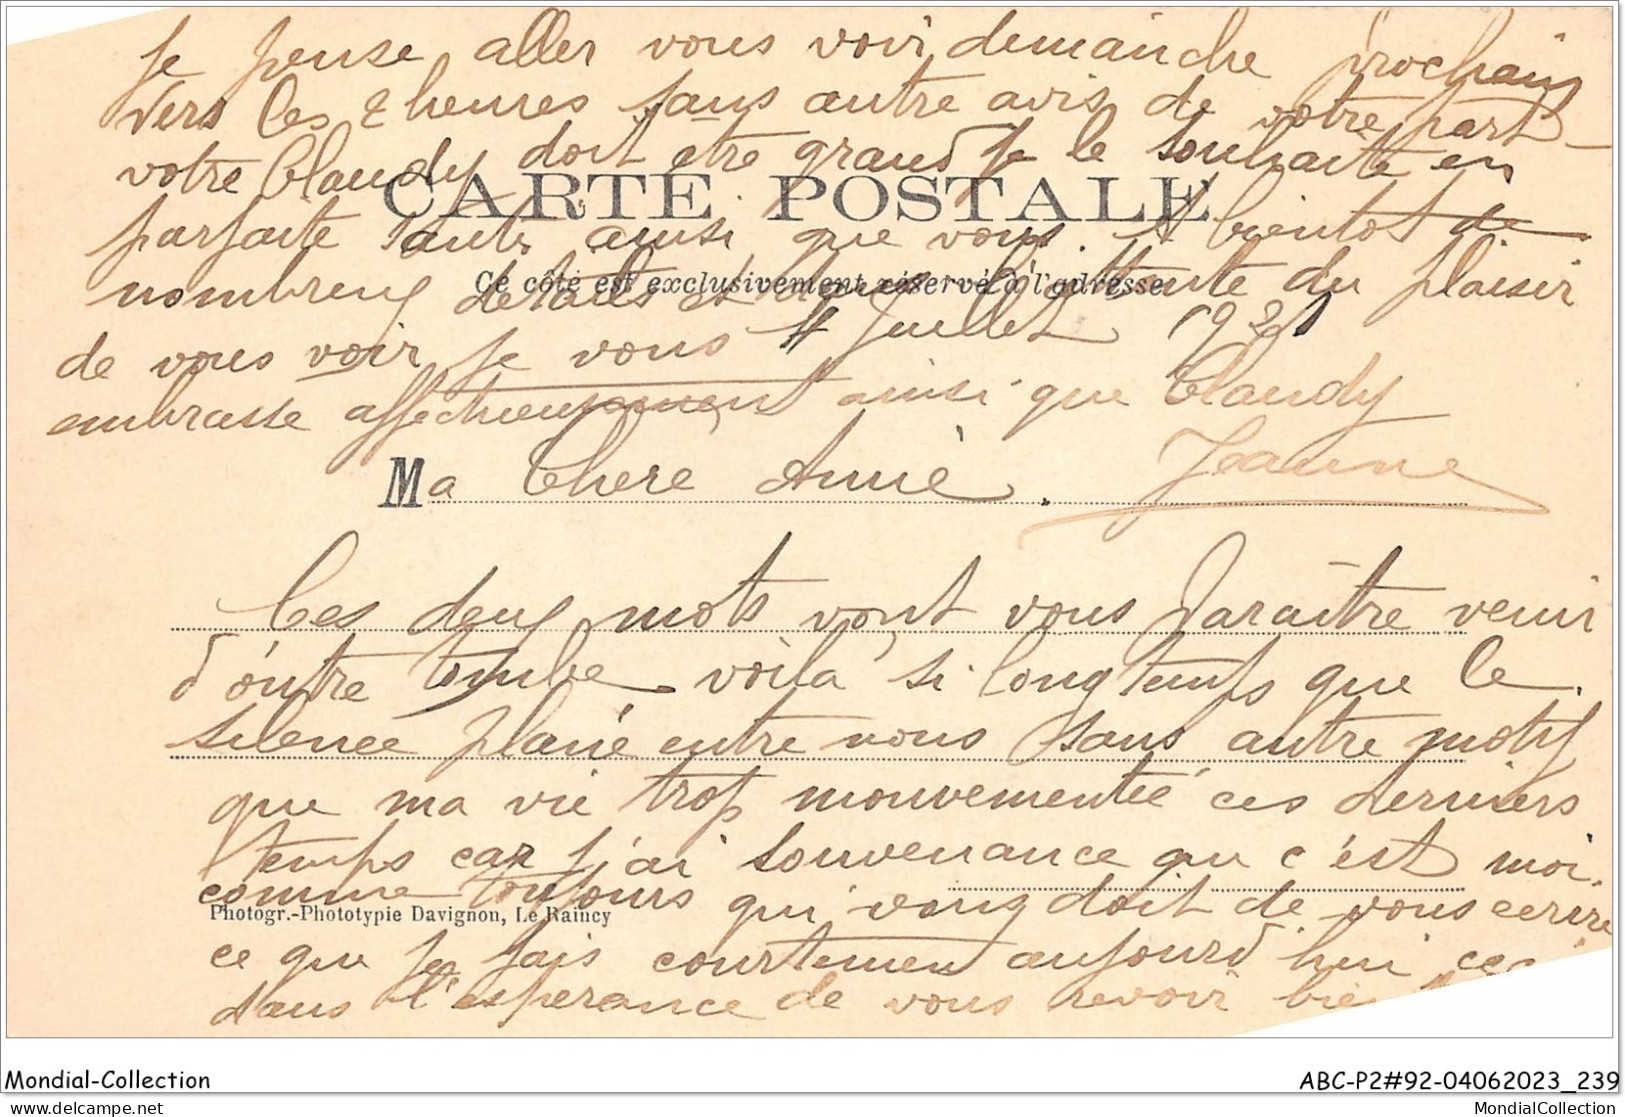 Je pense aller vous voir demanche prochain
vers les 2 heures sans autre avis de votre part
votre Claudy doit etre grand Je le souhaite en
CARTE POSTALE
parfaite santé ainsi que vous. A bientot de
Ce côté est exclusivement réservé à l'adresse
nombreux details et dans l'attente du plaisir
de vous voir Je vous 4 Juillet 1921
embrasse affectueusement ainsi que Claudy
Jeanne
Ma Chere Annie.
Ces deux mots vont vous paraître venir
d'outre tombe voila si longtemps que le
silence plané entre nous sans autre motif
que ma vie trop mouvementée ces derniers
temps car j'ai souvenance qu c'est moi
comme toujours qui vous doit de vous ecrire
Photogr.-Phototypie Davignon, Le Raincy
ce que je fais courtement aujourd'hui
dans l'esperance de vous revoir
Mondial-Collection
ABC-P2#92-04062023_239
delcampe.net
MondialCollection